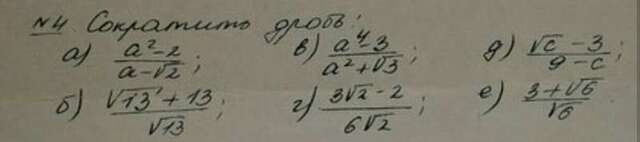 №4 Сократить дробь:
а) (a²-2)/(a-√2); в) (a⁴-3)/(a²+√3); д) (√c-3)/(9-c);
б) (√13+13)/√13; г) (3√2-2)/(6√2); е) (3+√6)/√6;